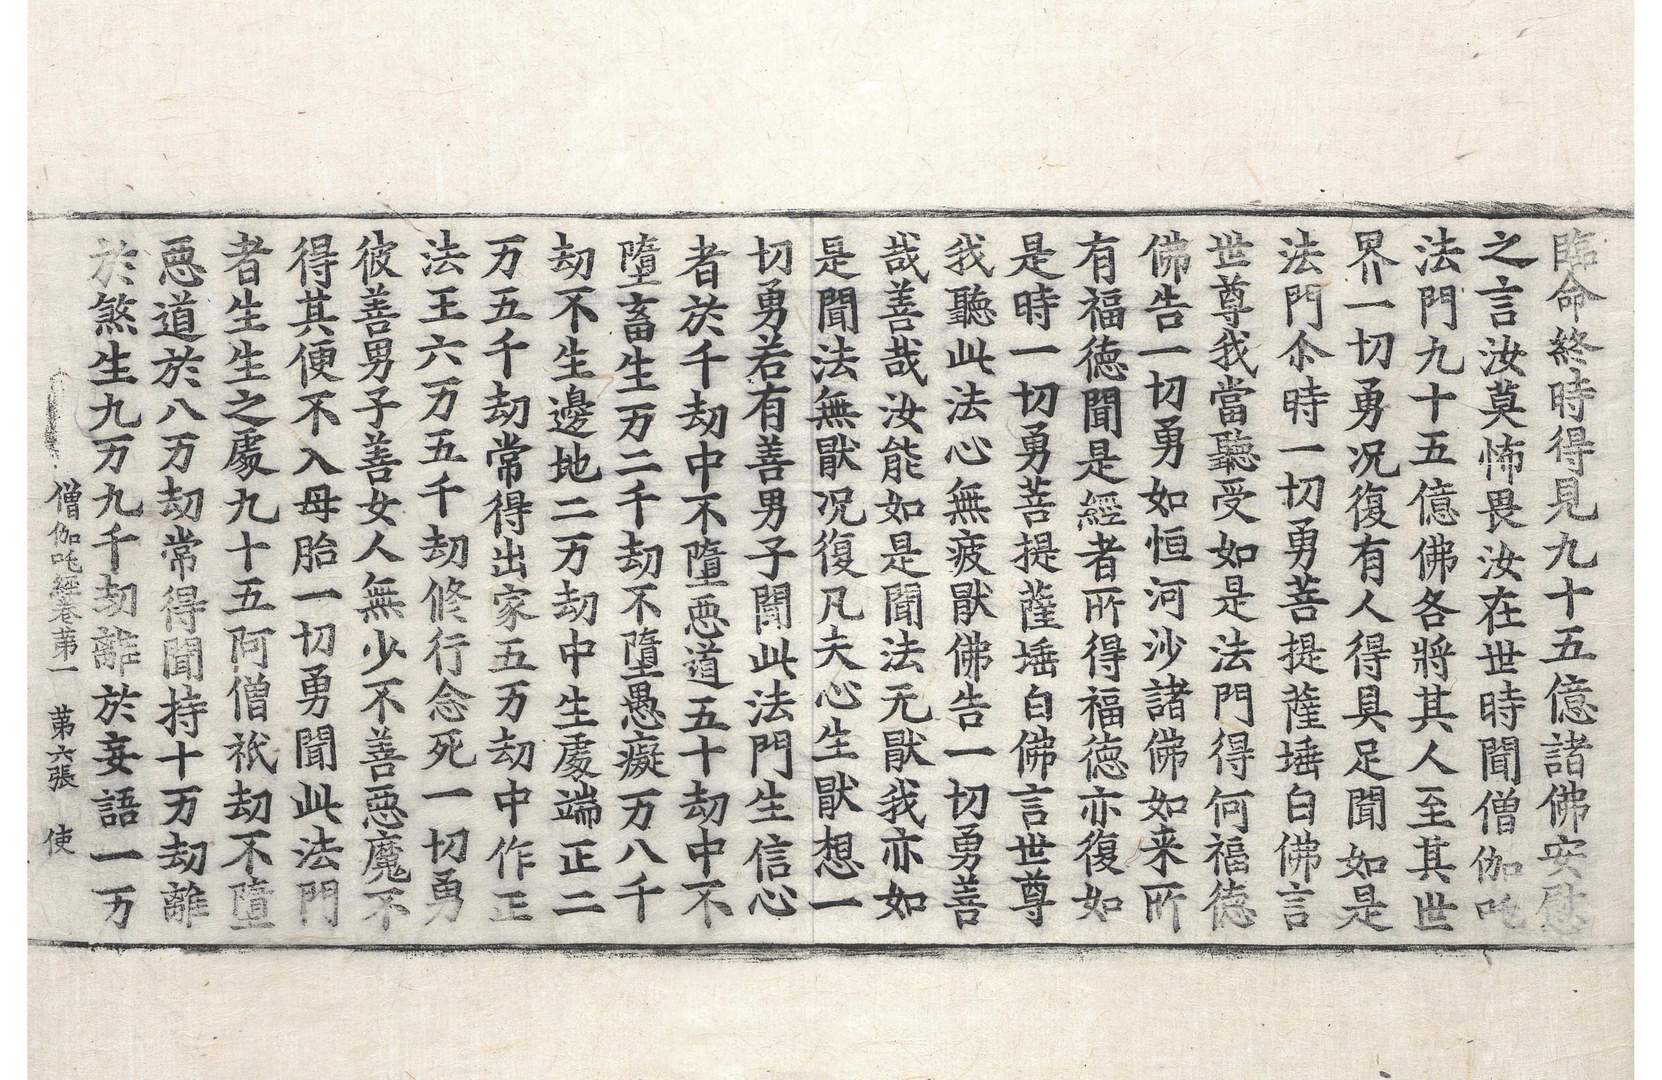 臨命終時得見九十五億諸佛安慰
之言汝莫怖畏汝在世時聞僧伽吒
法門九十五億佛各將其人至其世
界一切勇况復有人得具足聞如是
法門尒時一切勇菩提薩埵白佛言
世尊我當聽受如是法門得何福德
佛告一切勇如恒河沙諸佛如来所
有福德聞是經者所得福德亦復如
是時一切勇菩提薩埵白佛言世尊
我聽此法心無疲猒佛告一切勇善
哉善哉汝能如是聞法无猒我亦如
是聞法無猒况復凡夫心生猒想一
切勇若有善男子聞此法門生信心
者於千劫中不墮惡道五十劫中不
墮畜生万二千劫不墮愚癡万八千
劫不生邊地二万劫中生處端正二
万五千劫常得出家五万劫中作正
法王六万五千劫修行念死一切勇
彼善男子善女人無少不善惡魔不
得其便不入母胎一切勇聞此法門
者生生之處九十五阿僧祇劫不墮
惡道於八万劫常得聞持十万劫離
於煞生九万九千劫離於妄語一万
僧伽吒經卷苐一　苐六張　使